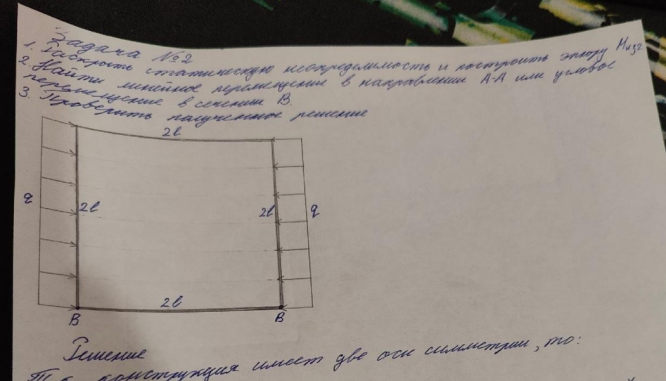 Задача №2
1. Раскрыть статическую неопределимость и построить эпюру Mизг
2. Найти линейное перемещение в направлении А-А или угловое
перемещение в сечении В.
3. Проверить полученное решение
2l
q
2l
2l
q
2l
B
B
Решение
Т.к. конструкция имеет две оси симметрии, то: